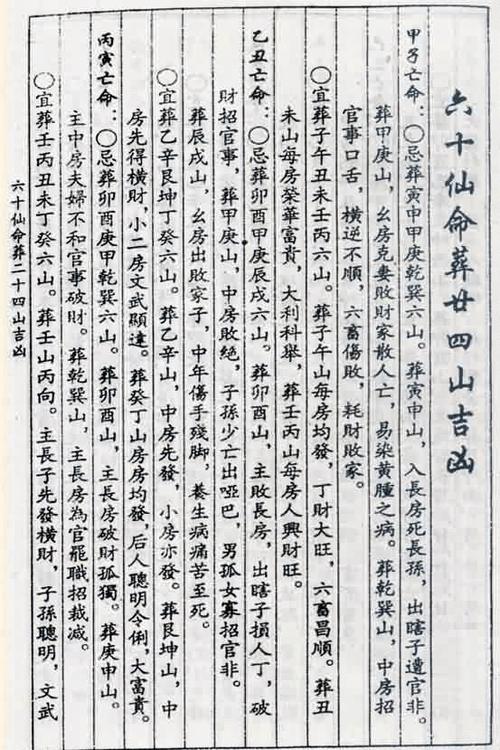 六十仙命葬廿四山吉凶
甲子亡命：○忌葬寅申甲庚乾巽六山。葬寅申山，入長房死長孫，出瞎子遭官非。
葬甲庚山，幺房克妻敗財家散人亡，易染黄腫之病。葬乾巽山，中房招
官事口舌，橫逆不順，六畜傷敗，耗財敗家。
○宜葬子午丑未壬丙六山。葬子午山每房均發，丁財大旺，六畜昌順。葬丑
未山每房榮華富貴，大利科舉，葬壬丙山每房人興財旺。
乙丑亡命：○忌葬卯酉甲庚辰戌六山。葬卯酉山，主敗長房，出瞎子損人丁，破
財招官事，葬甲庚山，中房敗絕，子孫少亡出啞巴，男孤女寡招官非。
葬辰戌山，幺房出敗家子，中年傷手殘脚，養生病痛苦至死。
○宜葬乙辛艮坤丁癸六山。葬乙辛山，中房先發，小房亦發。葬艮坤山，中
房先得橫財，小二房文武顯達。葬癸丁山房房均發，后人聰明令俐，大富貴。
丙寅亡命：○忌葬卯酉庚甲乾巽六山。葬卯酉山，主長房破財孤獨。葬庚申山。
主中房夫婦不和官事破財。葬乾巽山，主長房為官罷職招裁减。
○宜葬壬丙丑未丁癸六山。葬壬山丙向。主長子先發橫財，子孫聰明，文武
六十仙命葬二十四山吉凶